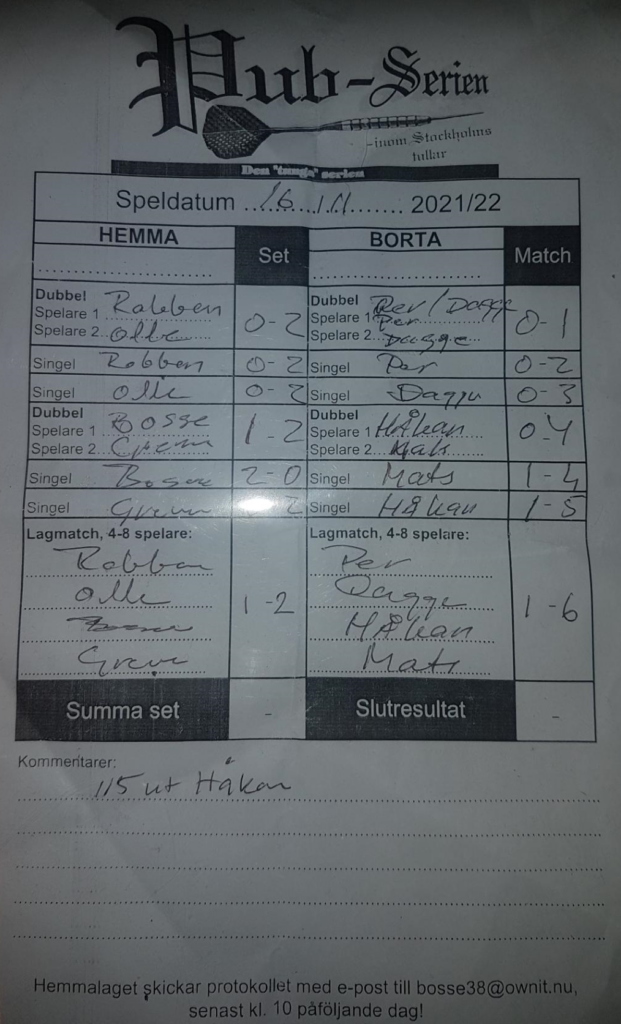 Pub-Serien
-inom Stockholms
tullar
Den "tunga" serien
Speldatum ...16...11........ 2021/22
HEMMA Set BORTA Match
Dubbel Dubbel Per/Dagge
Spelare 1 Robban 0-2 Spelare 1 Per 0-1
Spelare 2 Olle Spelare 2 Dagge
Singel Robban 0-2 Singel Per 0-2
Singel Olle 0-2 Singel Dagge 0-3
Dubbel Dubbel
Spelare 1 Bosse 1-2 Spelare 1 Håkan 0-4
Spelare 2 Greve Spelare 2 Mats
Singel Bosse 2-0 Singel Mats 1-4
Singel Greve 2 Singel Håkan 1-5
Lagmatch, 4-8 spelare: Lagmatch, 4-8 spelare:
Robban Per
Olle 1-2 Dagge 1-6
Bosse Håkan
Greve Mats
Summa set - Slutresultat -
Kommentarer:
115 ut Håkan
Hemmalaget skickar protokollet med e-post till bosse38@ownit.nu,
senast kl. 10 påföljande dag!